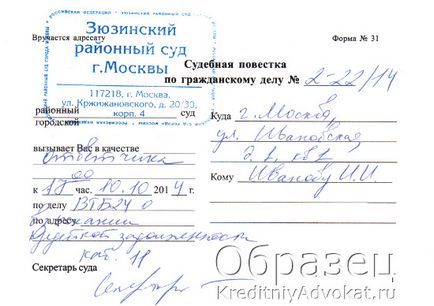 Вручается адресату
Форма № 31
Зюзинский
районный суд
г.Москвы
117218, г. Москва,
ул. Кржижановского, д. 20/30,
корп. 4
Судебная повестка
по гражданскому делу № 2-22/14
районный суд
городской
Куда г. Москва,
ул. Ивановская,
д. 1, кв 1
вызывает Вас в качестве
ответчика
к 17 00 час. 10.10 2014 г.
Кому Иванову И.И.
по делу ВТБ24 о
по адресу взыскании
кредитной задолженности
каб. 11
Секретарь суда
Образец
KreditniyAdvokat.ru